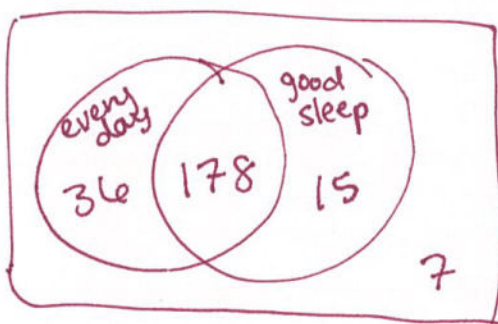 every
days
good
sleep
36
178
15
7